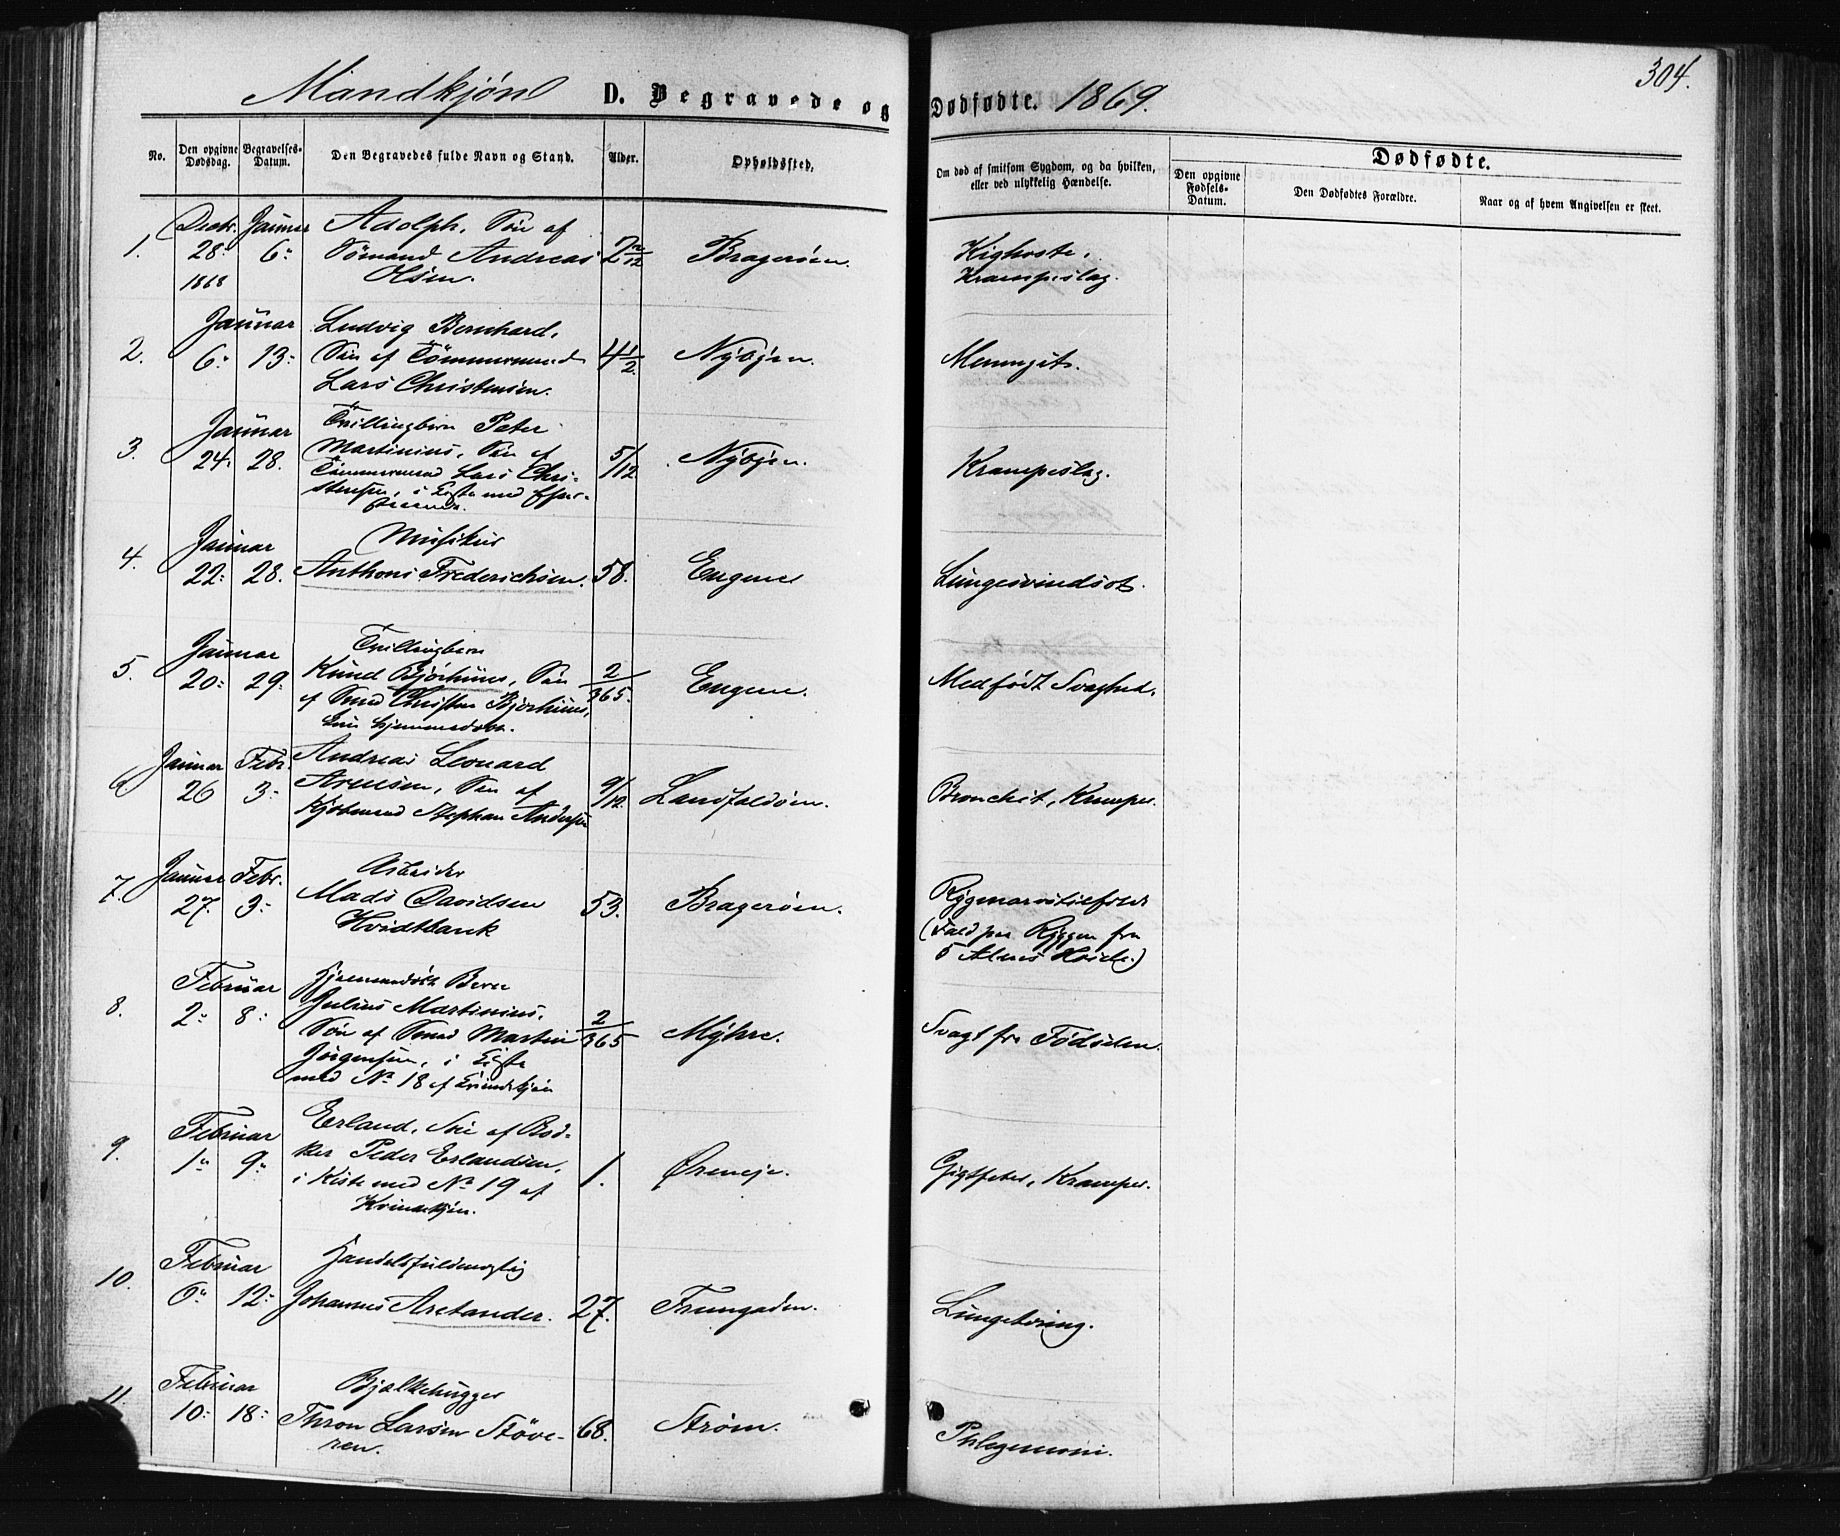 304.
Mandkjøn D. Begravede og Dødfødte. 1869.
No. Den opgivne Dødsdag. Begravelses-Datum. Den Begravedes fulde Navn og Stand. Alder. Opholdssted. Om død af smitsom Sygdom, og da hvilken, eller ved ulykkelig Hændelse. Dødfødte.
Den opgivne Fødsels-Datum. Den Dødfødtes Forældre. Naar og af hvem Angivelsen er skeet.
Decbr. Januar Adolph, Søn af
1. 28 6 Sømand Andreas 2 2/12 Bragerøen. Kighoste,
1868 Olsen. Krampeslag.
Januar Ludvig Bernhard,
2. 6 13 Søn af Tømmermand 4 1/2 Nybyen. Meningit.
Lars Christensen.
Januar Tvillingbarn Peter
3. 24 28. Martinius, Søn af 5/12 Nybyen. Krampeslag.
Tømmermand Lars Chri-
stensen, i Kiste med
Januar Musikus
4. 22 28. Anthoni Frederichsen. 58. Engene Lungesvindsot.
Januar Tvillingbarn
5. 20 29 Knud Bjørhuus, Søn 2/365 Engene. Medfødt Svaghed.
af Smed Christen Bjørhuus,
hjemmedøbt.
Januar Febr. Andreas Leonard
6 26 3 Søn af 9/12. Landfaldøen. Bronchit, Kramper.
Kjøbmand Stephan Andersen
Januar Febr. Arbeider
7. 27. 3 Mads Davidsen 53. Bragerøen. Rygmarvs
Hvidtbank (Fald paa Ryggen fra
5 Alens Høide.)
Februar Hjemmedøbt Barn
8. 2 8 Julius Martinius, 2/365 Myhre. Svag fra Fødselen.
Søn af Smed Martin
Jørgensen, i Kiste
med No 18 af Kvindekjøn
Februar Erland, Søn af Bød-
9. 1 9 ker Peder Erlandsen, 1. Øreneje. Gigtfeber, Kramper.
i Kiste med No 19 af
Kvindekjøn.
Februar Handelsfuldmægtig
10. 6 12 Johannes Arctander. 27. Frungaden. Lungetæring.
Februar Bjelkehugger
11. 10 18 Thron Larsen Støve- 68. Strøm. Phlegemoni.
ren.